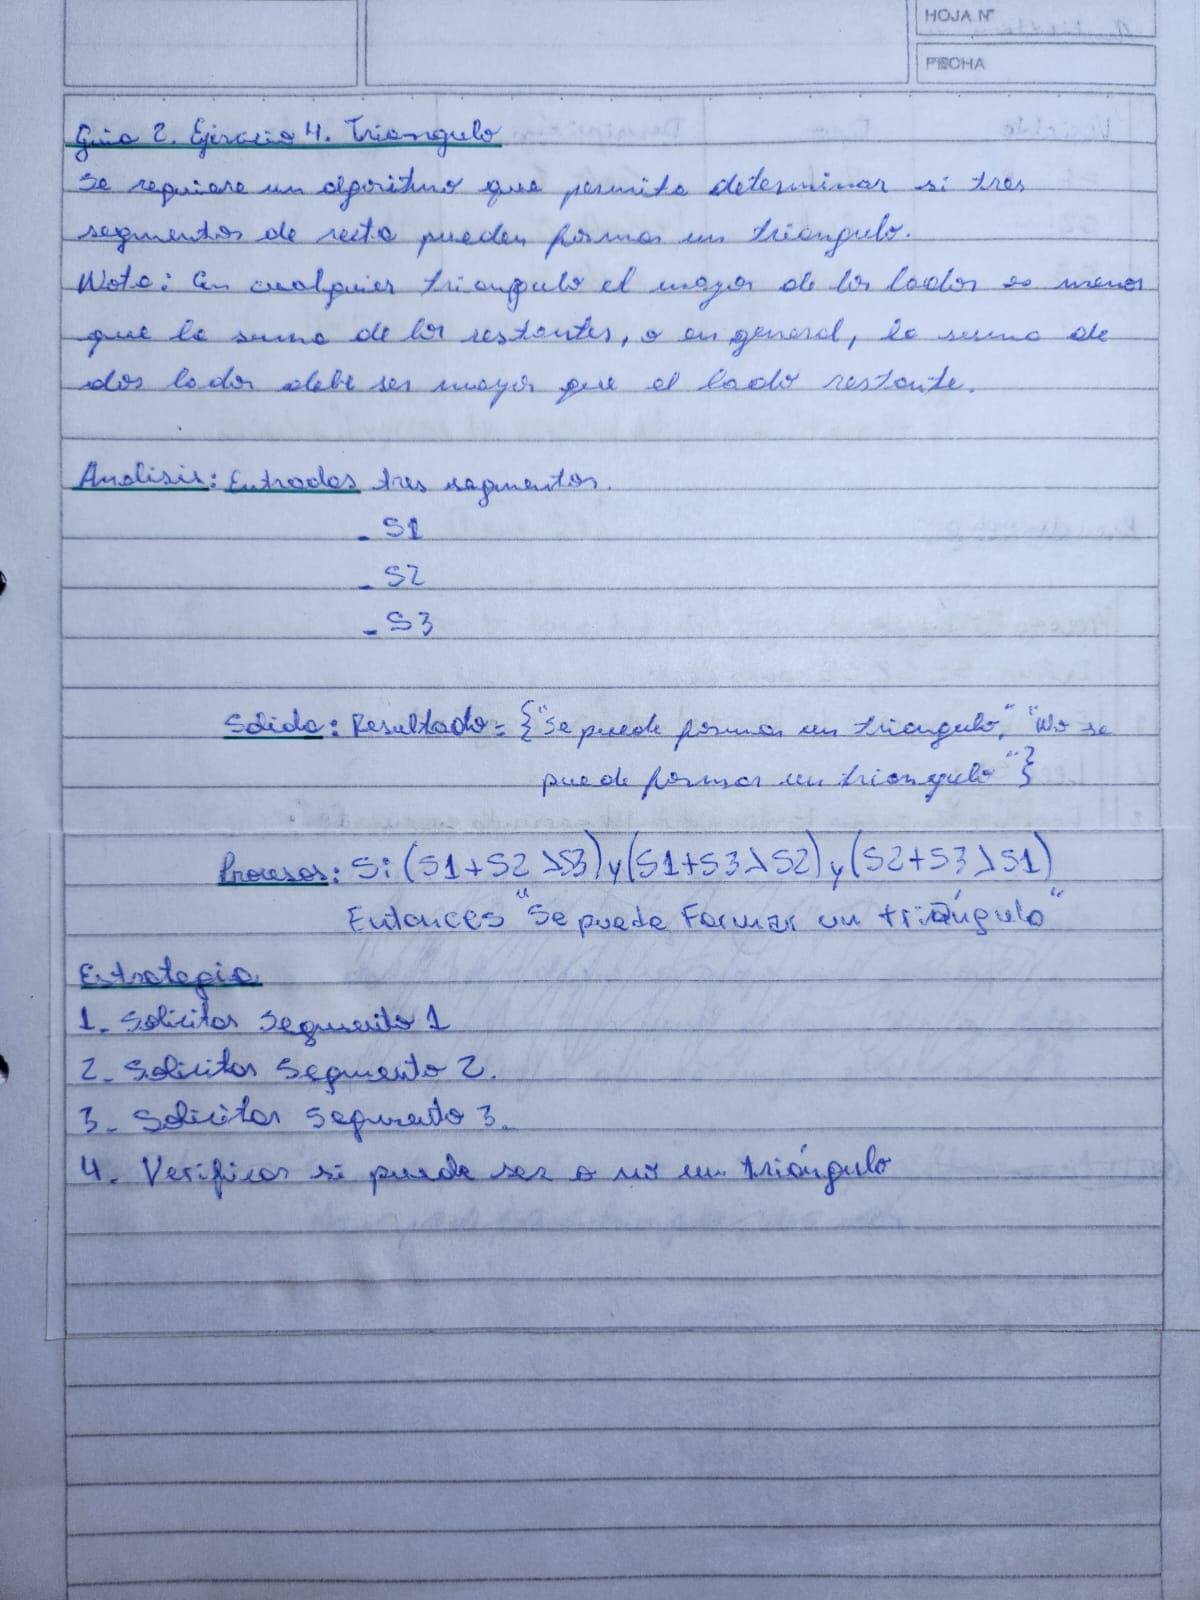 HOJA N°
FECHA
Guia 2. Ejercicio 4. Triangulo
Se requiere un algoritmo que permita determinar si tres
segmentos de recta pueden formar un triangulo.
Nota: En cualquier triangulo el mayor de los lados es menor
que la suma de los restantes, o en general, la suma de
dos lados debe ser mayor que el lado restante.
Analisis: Entradas tres segmentos.
- S1
- S2
- S3
Salida: Resultado = {"Se puede formar un triangulo", "No se
puede formar un triangulo"}
Procesos: Si (S1+S2 > S3) y (S1+S3 > S2) y (S2+S3 > S1)
Entonces "Se puede Formar un triángulo"
Estrategia
1. Solicitar Segmento 1
2. Solicitar Segmento 2.
3. Solicitar Segmento 3.
4. Verificar si puede ser o no un triángulo